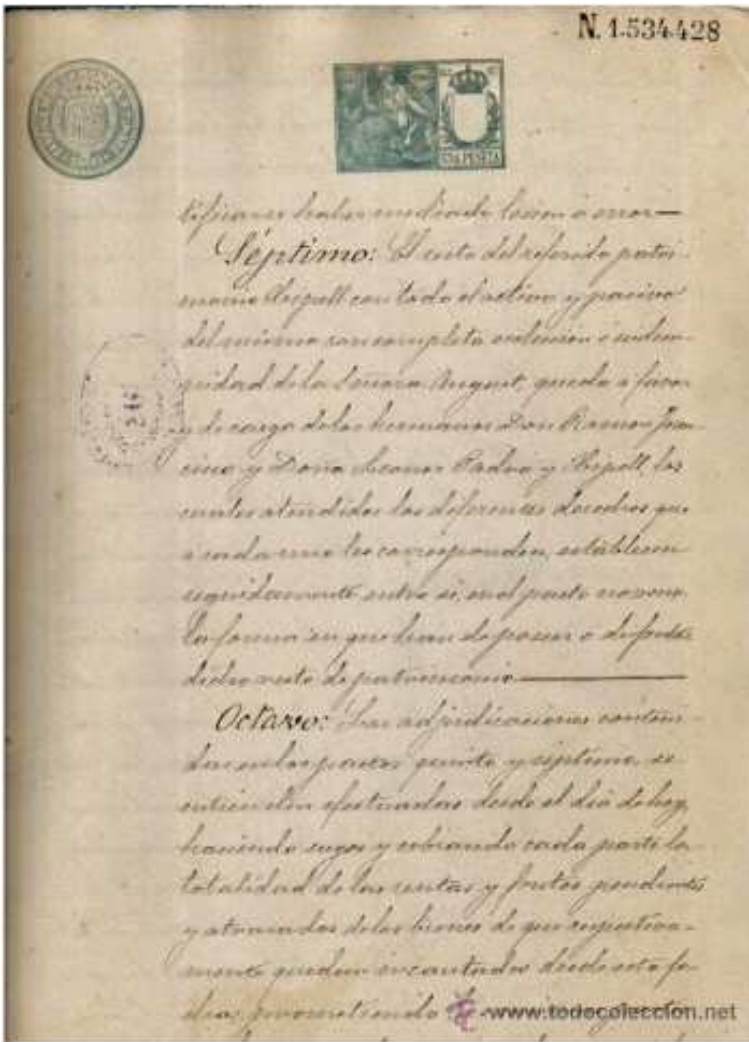 N. 1.534.428
UNA PESETA
tificarse haber mediado lesion ó error
Séptimo: El resto del referido patri-
monio Llepell con todo el activo y pasivo
del mismo con completa
de la Señora Anguet, queda a favor
y de cargo de los hermanos Don Ramon
y Doña Leonor Padua y los
cuales atendidos los diferentes derechos que
á cada uno les corresponden, establecen
seguidamente entre sí, en el pacto noveno
la forma en que han de poseer
dicho resto de patrimonio
Octavo: Las adjudicaciones conteni-
das en los pactos quinto y séptimo, se
entienden efectuadas desde el dia de hoy,
haciendo suyos y cobrando cada parte la
totalidad de las rentas y frutos pendientes
y atrasados de los bienes de que respectiva-
mente quedan incautados desde esta fe-
cha, prometiendo
www.todocoleccion.net